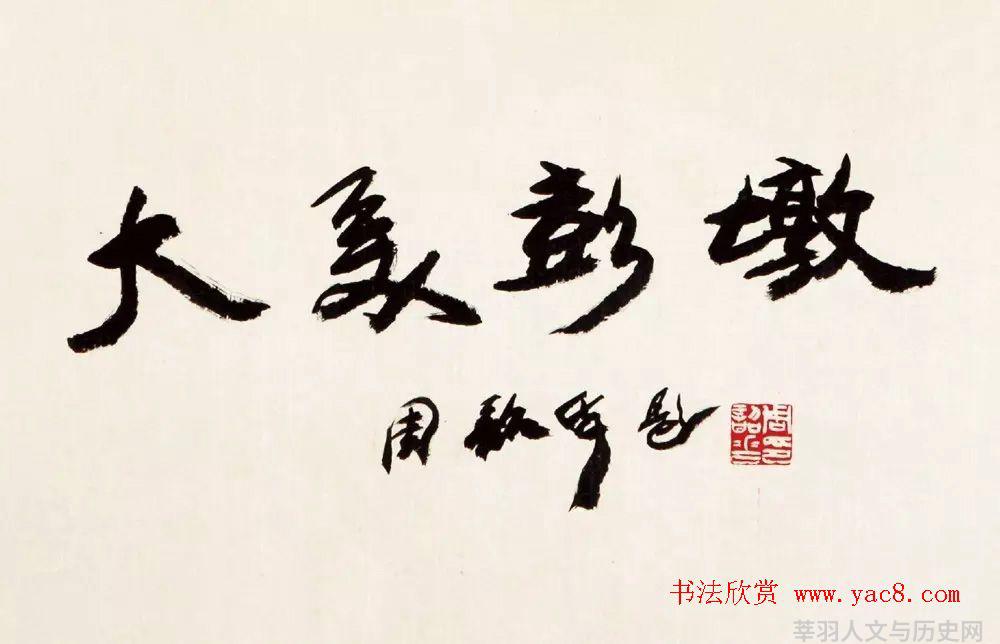 大美彭墩
周韶华题
书法欣赏 www.yac8.com
莘羽人文与历史网